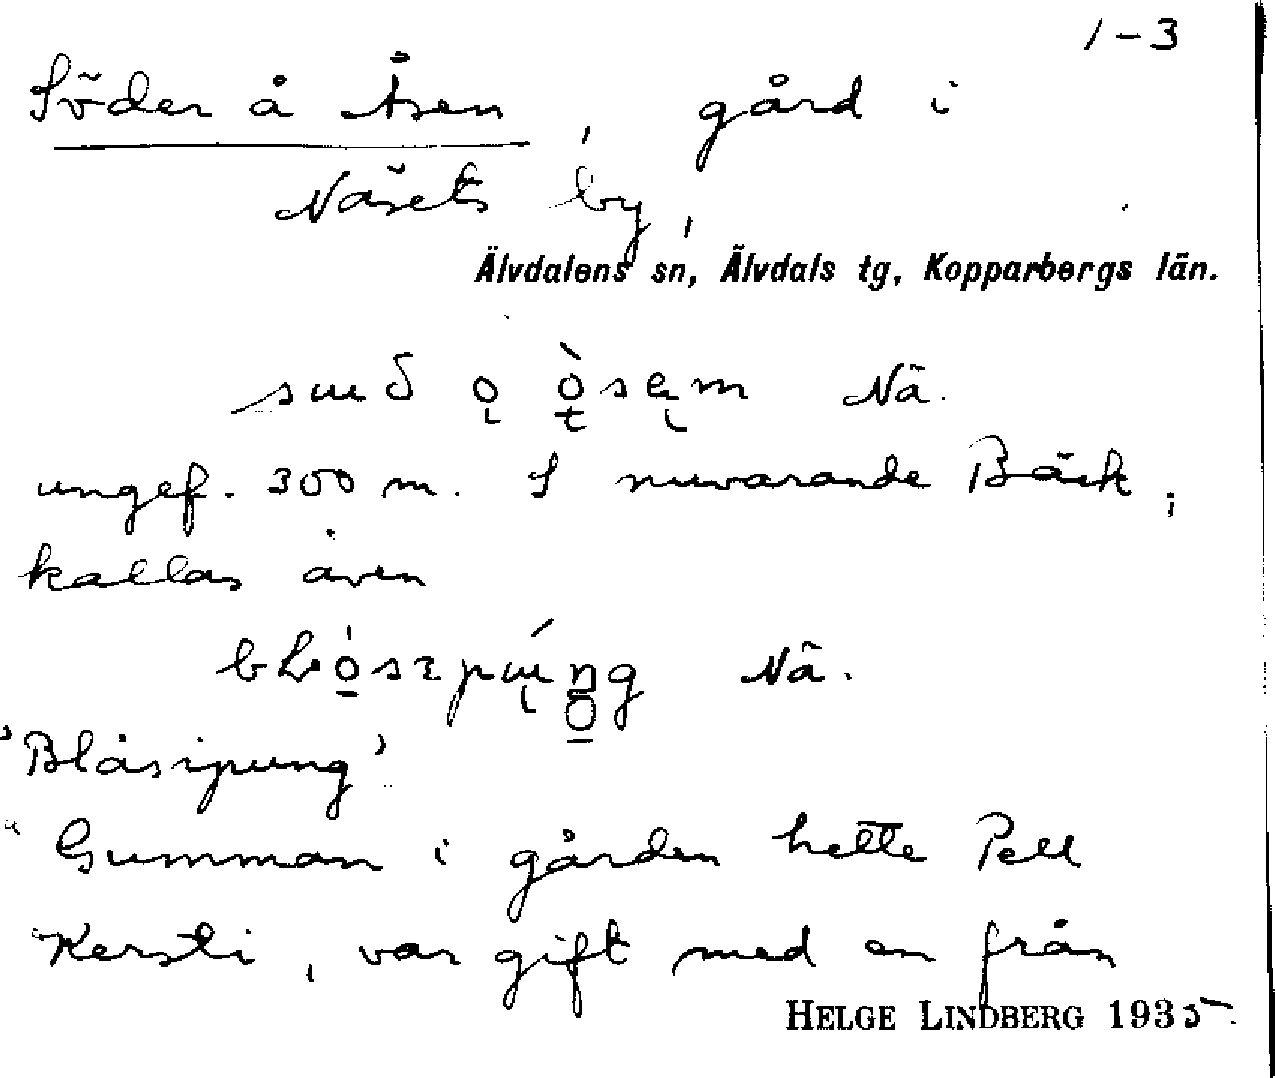 1-3
Söder å Åsen, gård i
Näsets by,
Älvdalens sn, Älvdals tg, Kopparbergs län.
Nä.
ungef. 300 m. S nuvarande Bäck;
kallas även
Nä.
'Blåsipung'
"Gumman i gården hette Pell
Kersti, var gift med en från
HELGE LINDBERG 1935.